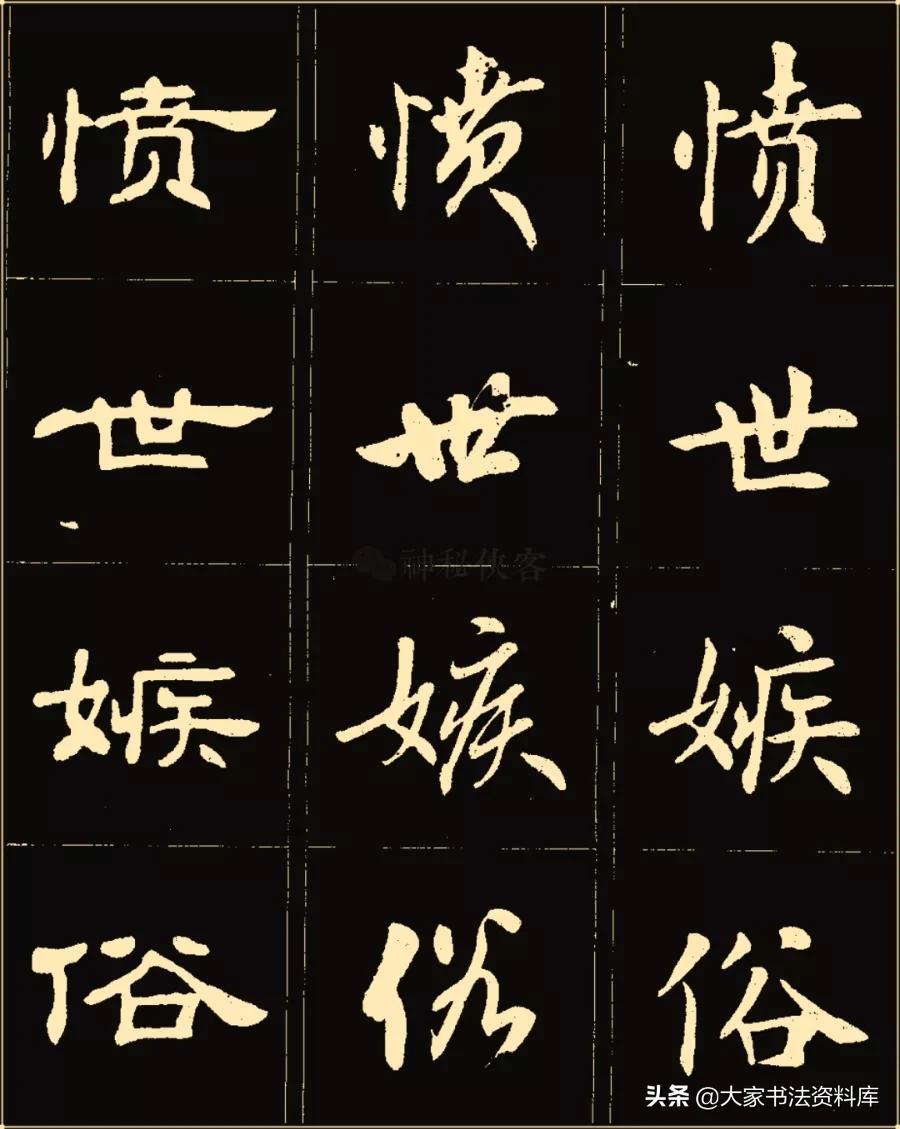 愤愤愤
世世世
嫉嫉嫉
俗俗俗
神秘侠客
头条 @大家书法资料库